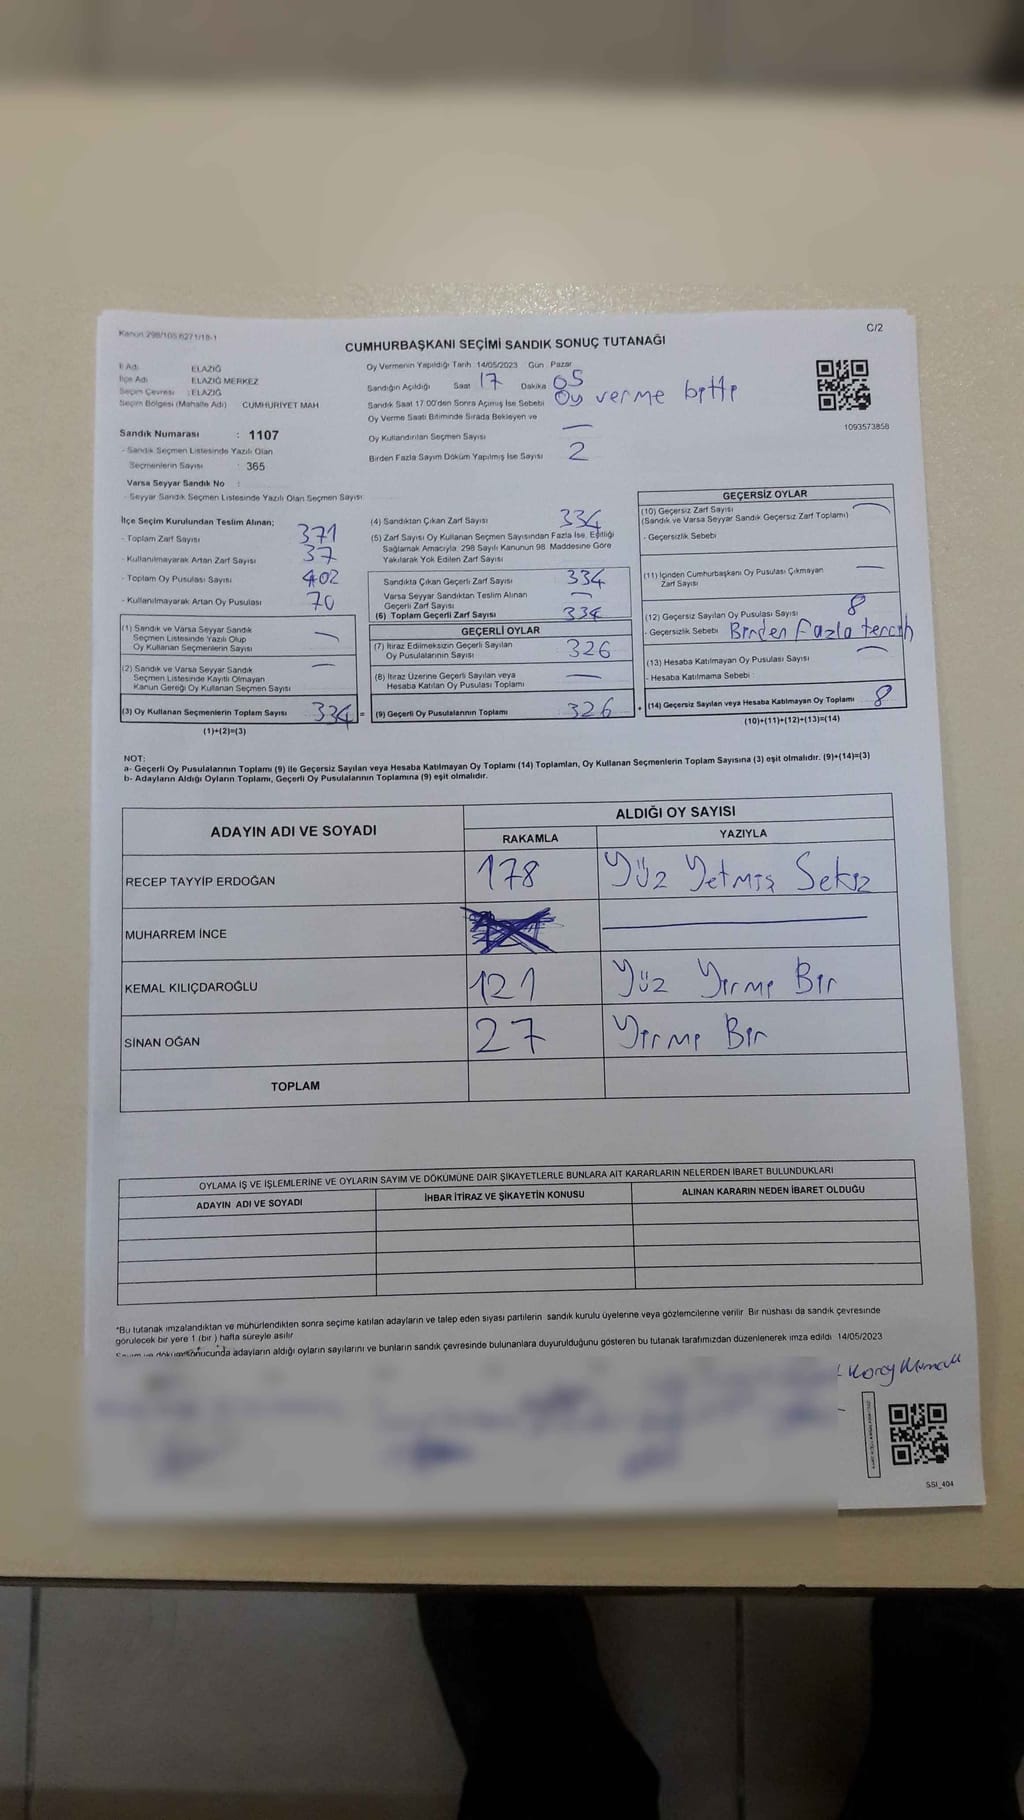 Kanun 298/105 6271/18-1
C/2
CUMHURBAŞKANI SEÇİMİ SANDIK SONUÇ TUTANAĞI
İl Adı : ELAZIĞ
İlçe Adı ELAZIĞ MERKEZ
Seçim Çevresi : ELAZIĞ
Seçim Bölgesi (Mahalle Adı) CUMHURİYET MAH
Sandık Numarası : 1107
- Sandık Seçmen Listesinde Yazılı Olan
Seçmenlerin Sayısı : 365
Varsa Seyyar Sandık No :
- Seyyar Sandık Seçmen Listesinde Yazılı Olan Seçmen Sayısı
Oy Vermenin Yapıldığı Tarih 14/05/2023 Gün Pazar
Sandığın Açıldığı Saat 17 Dakika 05
Sandık Saat 17.00'den Sonra Açmış İse Sebebi Oy verme bitti
Oy Verme Saati Bitiminde Sırada Bekleyen ve
Oy Kullandırılan Seçmen Sayısı —
Birden Fazla Sayım Döküm Yapılmış İse Sayısı 2
1093573858
İlçe Seçim Kurulundan Teslim Alınan;
- Toplam Zarf Sayısı 371
- Kullanılmayarak Artan Zarf Sayısı 37
- Toplam Oy Pusulası Sayısı 402
- Kullanılmayarak Artan Oy Pusulası 70
(1) Sandık ve Varsa Seyyar Sandık
Seçmen Listesinde Yazılı Olup
Oy Kullanan Seçmenlerin Sayısı —
(2) Sandık ve Varsa Seyyar Sandık
Seçmen Listesinde Kayıtlı Olmayan
Kanun Gereği Oy Kullanan Seçmen Sayısı —
(3) Oy Kullanan Seçmenlerin Toplam Sayısı 334 =
(1)+(2)=(3)
(4) Sandıktan Çıkan Zarf Sayısı 334
(5) Zarf Sayısı Oy Kullanan Seçmen Sayısından Fazla İse, Eşitliği
Sağlamak Amacıyla 298 Sayılı Kanunun 98. Maddesine Göre
Yakılarak Yok Edilen Zarf Sayısı
Sandıkta Çıkan Geçerli Zarf Sayısı 334
Varsa Seyyar Sandıktan Teslim Alınan
Geçerli Zarf Sayısı —
(6) Toplam Geçerli Zarf Sayısı 334
GEÇERLİ OYLAR
(7) İtiraz Edilmeksizin Geçerli Sayılan
Oy Pusulalarının Sayısı 326
(8) İtiraz Üzerine Geçerli Sayılan veya
Hesaba Katılan Oy Pusulası Toplamı —
(9) Geçerli Oy Pusulalarının Toplamı 326 +
GEÇERSİZ OYLAR
(10) Geçersiz Zarf Sayısı —
(Sandık ve Varsa Seyyar Sandık Geçersiz Zarf Toplamı)
- Geçersizlik Sebebi
(11) İçinden Cumhurbaşkanı Oy Pusulası Çıkmayan
Zarf Sayısı —
(12) Geçersiz Sayılan Oy Pusulası Sayısı 8
- Geçersizlik Sebebi Birden Fazla tercih
(13) Hesaba Katılmayan Oy Pusulası Sayısı —
- Hesaba Katılmama Sebebi :
(14) Geçersiz Sayılan veya Hesaba Katılmayan Oy Toplamı 8
(10)+(11)+(12)+(13)=(14)
NOT:
a- Geçerli Oy Pusulalarının Toplamı (9) ile Geçersiz Sayılan veya Hesaba Katılmayan Oy Toplamı (14) Toplamları, Oy Kullanan Seçmenlerin Toplam Sayısına (3) eşit olmalıdır. (9)+(14)=(3)
b- Adayların Aldığı Oyların Toplamı, Geçerli Oy Pusulalarının Toplamına (9) eşit olmalıdır.
ADAYIN ADI VE SOYADI
ALDIĞI OY SAYISI
RAKAMLA YAZIYLA
RECEP TAYYİP ERDOĞAN 178 Yüz Yetmiş Sekiz
MUHARREM İNCE —
KEMAL KILIÇDAROĞLU 121 Yüz Yirmi Bir
SİNAN OĞAN 27 Yirmi Bir
TOPLAM
OYLAMA İŞ VE İŞLEMLERİNE VE OYLARIN SAYIM VE DÖKÜMÜNE DAİR ŞİKAYETLERLE BUNLARA AİT KARARLARIN NELERDEN İBARET BULUNDUKLARI
ADAYIN ADI VE SOYADI İHBAR İTİRAZ VE ŞİKAYETİN KONUSU ALINAN KARARIN NEDEN İBARET OLDUĞU
*Bu tutanak imzalandıktan ve mühürlendikten sonra seçime katılan adayların ve talep eden siyasi partilerin sandık kurulu üyelerine veya gözlemcilerine verilir. Bir nüshası da sandık çevresinde
görülecek bir yere 1 (bir) hafta süreyle asılır
Sayım ve döküm sonucunda adayların aldığı oyların sayılarını ve bunların sandık çevresinde bulunanlara duyurulduğunu gösteren bu tutanak tarafımızdan düzenlenerek imza edildi 14/05/2023
SSI_404